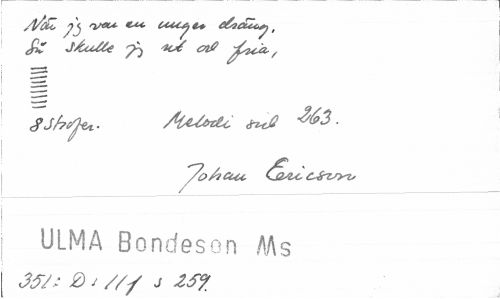 När jg var en unger dräng.
Så skulle jg ut och fria,
8 Strofer. Melodi sid 263.
Johan Ericson
ULMA Bondeson Ms
351: D: 11 f s 259.